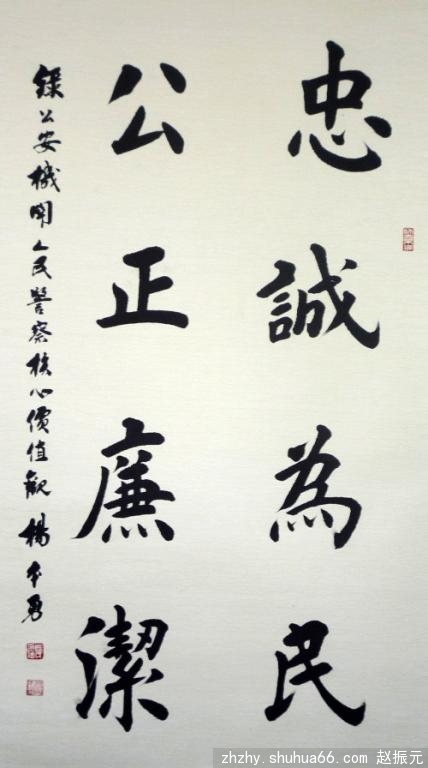 忠誠為民
公正廉潔
錄公安機関人民警察核心價值觀 楊本勇
zhzhy.shuhua66.com 赵振元